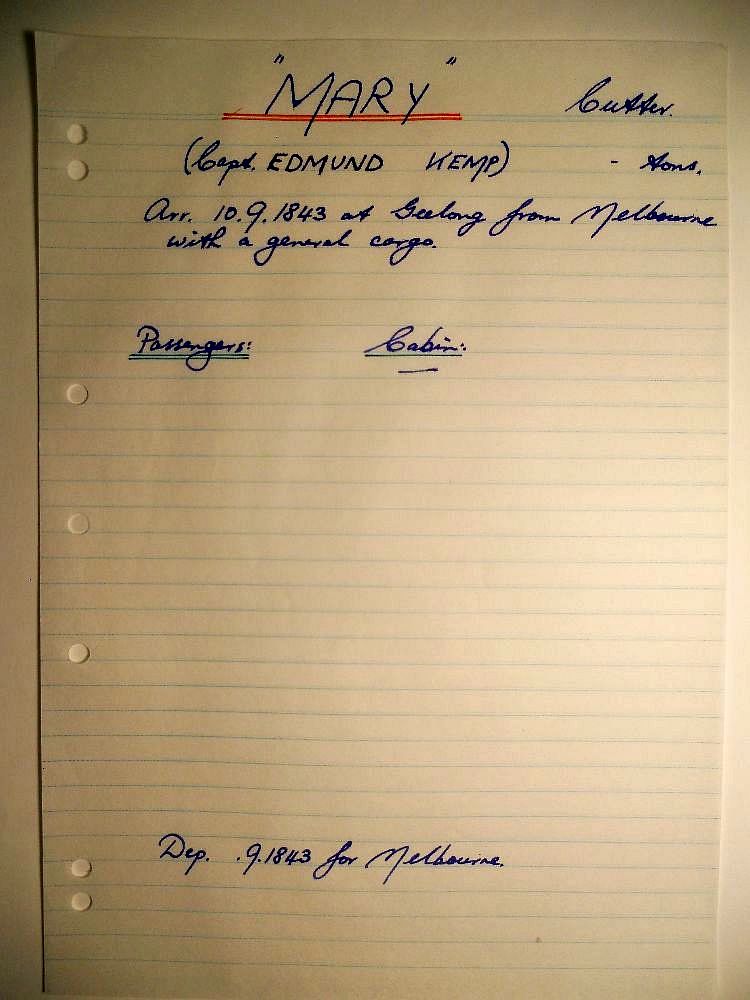 "MARY" Cutter.
(Capt. EDMUND KEMP) - tons.
Arr. 10.9.1843 at Geelong from Melbourne
with a general cargo.
Passengers: Cabin:
—
Dep. .9.1843 for Melbourne.